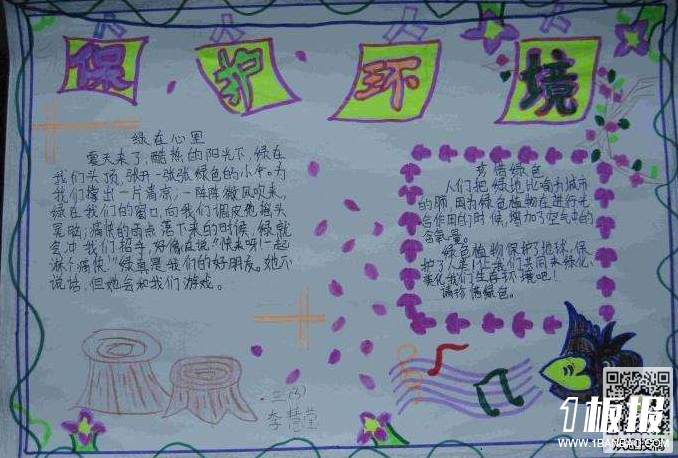 保护环境
绿在心里
夏天来了，酷热的阳光下，绿在
我们头顶，张开一张张绿色的小伞。为
我们撑出一片清凉，一阵阵微风吹来，
绿在我们的窗口，向我们调皮地摇头
晃脑；痛快的雨点落下来的时候，绿就
会冲我们招手，好像在说"快来呀！一起
淋个痛快。"绿真是我们的好朋友。她不
说话，但她会和我们游戏。
三(3)
李慧莹
珍惜绿色
人们把绿地比喻为城市
的肺，因为绿色植物在进行光
合作用的时候，增加了空气中的
含氧量。
绿色植物保护了地球，保
护了人类！让我们共同来绿化、
美化我们生存环境吧！
请珍惜绿色。
1板报
WWW.1BANBAO.COM